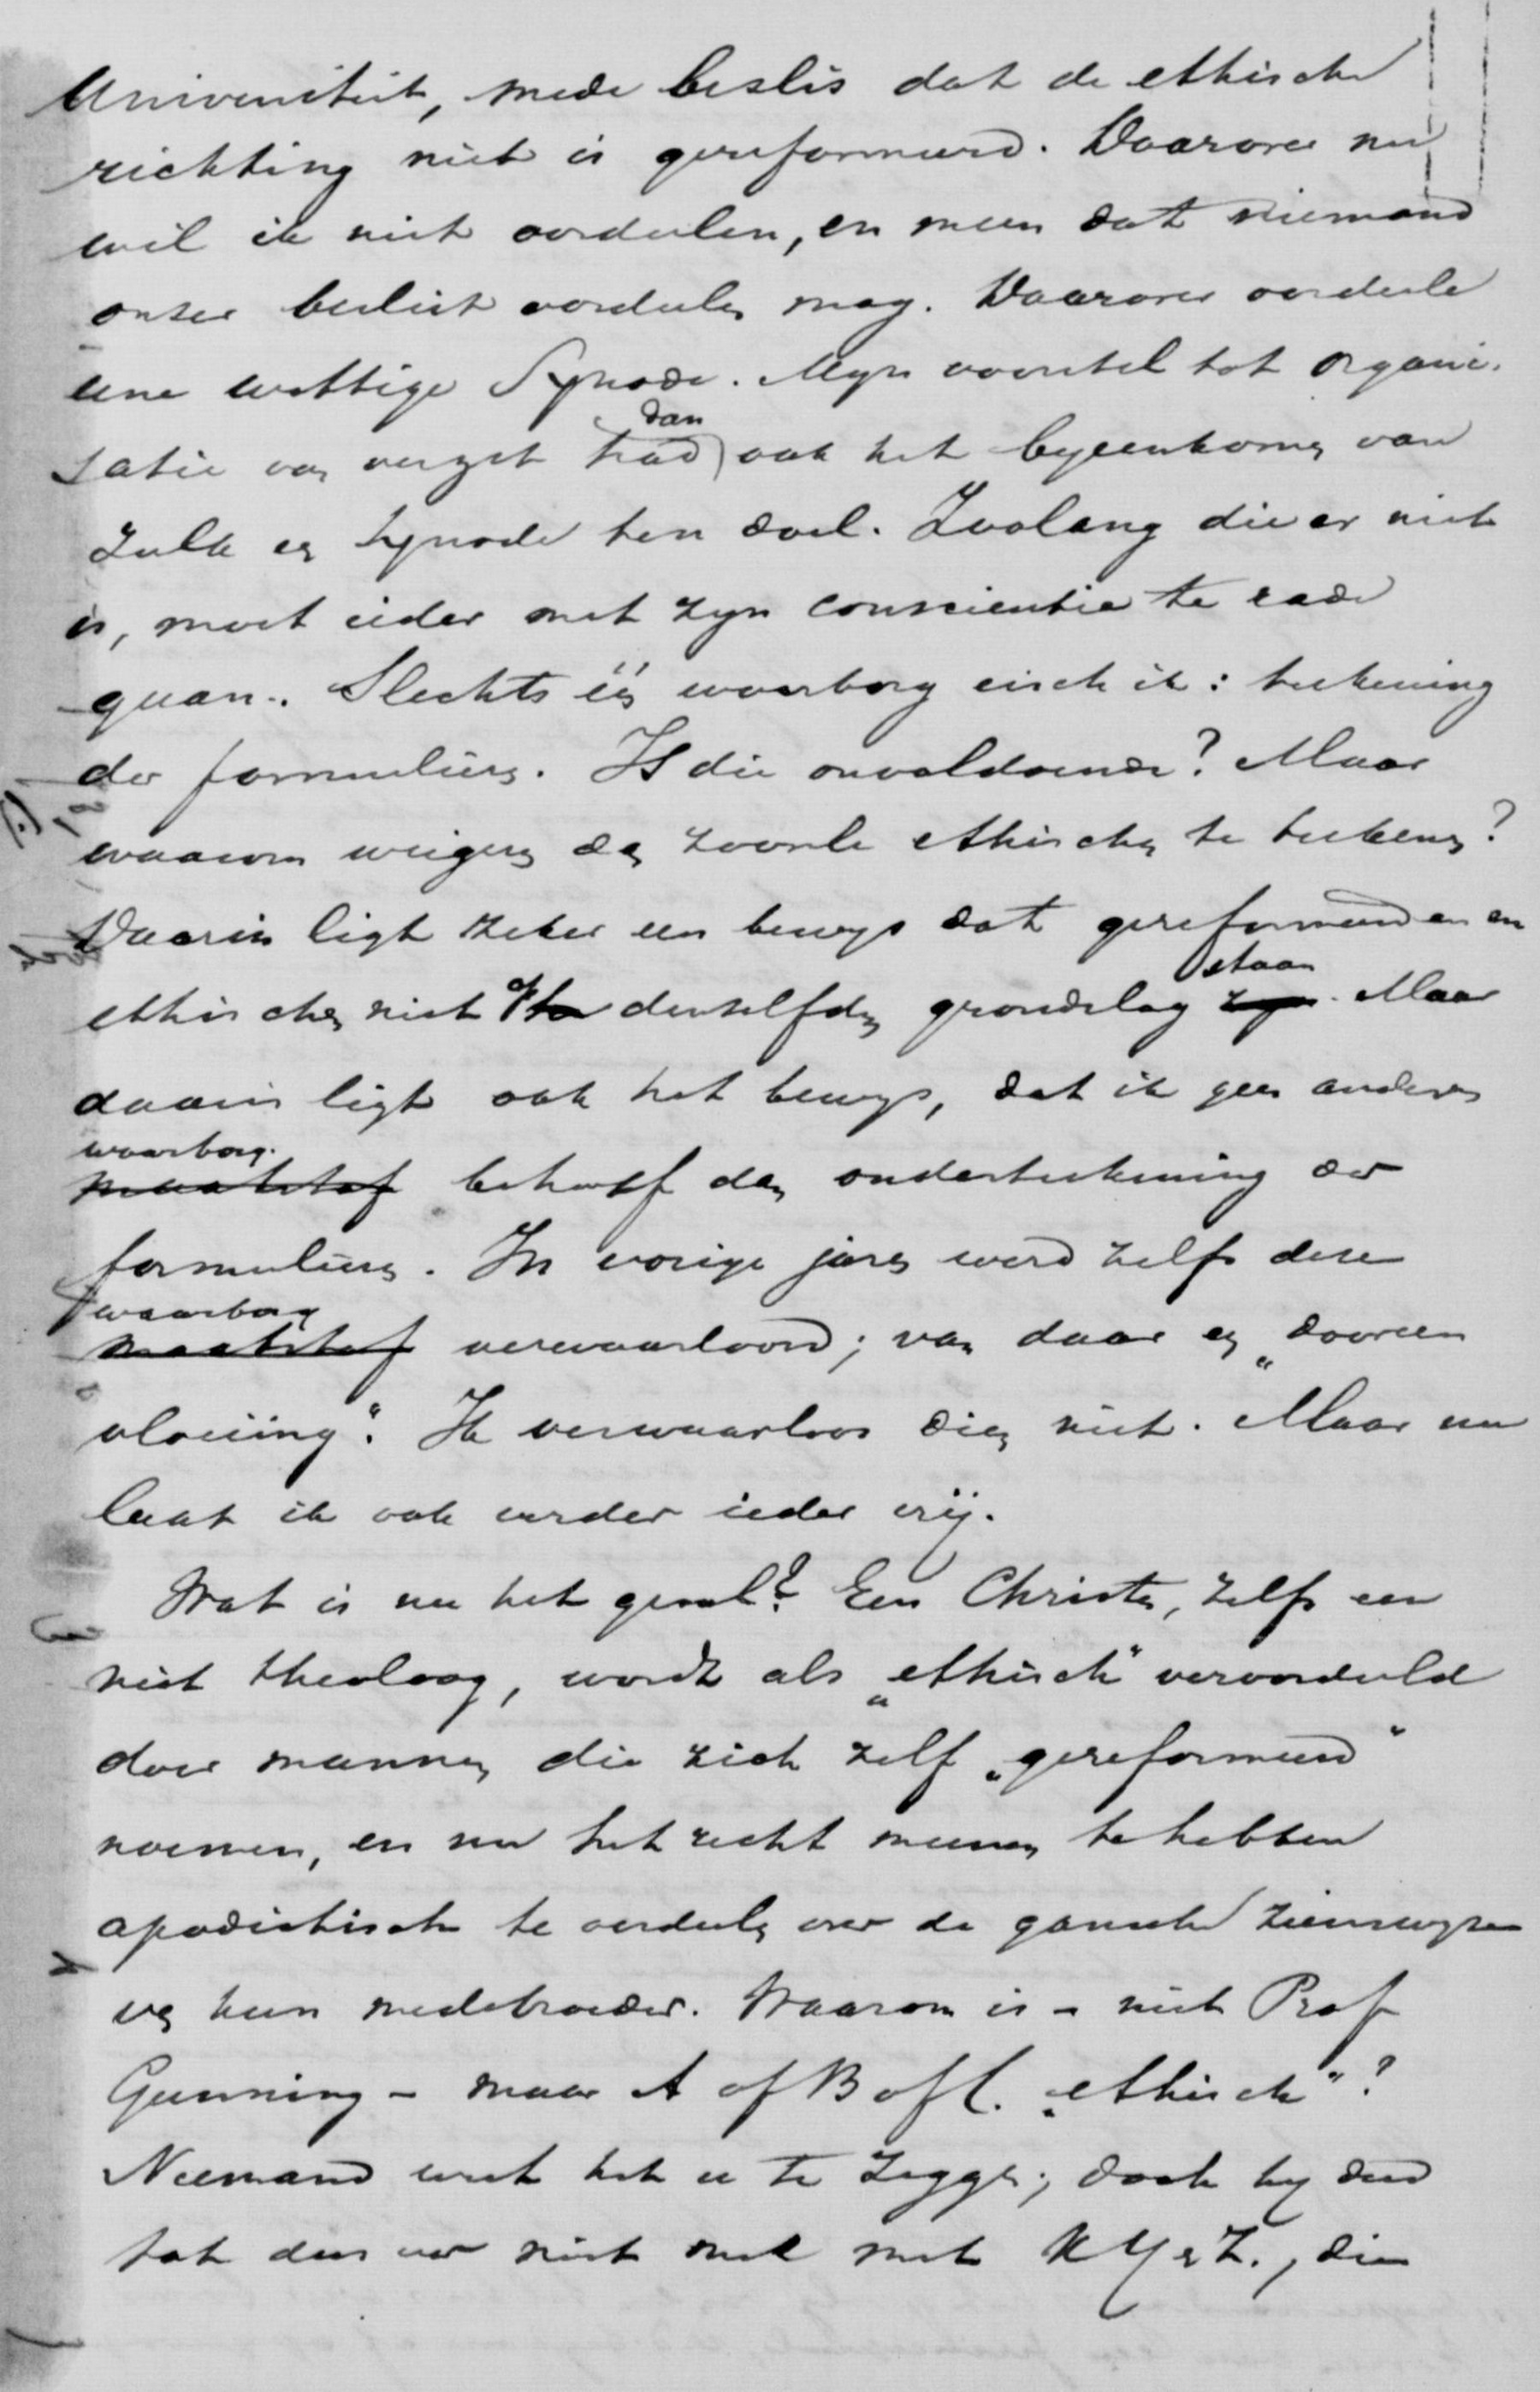 Universiteit, mede beslis dat de ethische
richting niet is gereformeerd. Daarover nu
wil ik niet oordeelen, en meen dat niemand
onzer beslist oordeelen mag. Daarover oordeele
eene wettige Synode. Myn voorstel tot organi-
satie van verzet had dan ook het byeenkomen van
zulk een Synode ten doel. Zoolang die er niet
is, moet ieder met zyn conscientie te rade
gaan. Slechts één waarborg eisch ik: teekening
der formulieren. Is die onvoldoende? Maar
waarom weigeren dan zoovele ethischen te teekenen?
Daarin ligt zeker een bewys dat gereformeerden en
ethischen niet op denzelfden grondslag zyn staan. Maar
daarin ligt ook het bewys, dat ik geen anderen
maatstaf waarborg behoef dan onderteekening der
formulieren. In vorige jaren werd zelfs deze
maatstaf waarborg verwaarloosd; van daar een „dooreen
vloeiing". Ik verwaarloos dien niet. Maar nu
laat ik ook verder ieder vrij.
Wat is nu het geval? Een Christen, zelfs een
niet theoloog, wordt als „ethisch" veroordeeld
door mannen die zich zelf „gereformeerd"
noemen, en nu het recht meenen te hebben
apodictisch te oordeelen over de gansche zienswyze
van hun medebroeder. Waarom is - niet Prof
Gunning - maar A of B of C. „ethisch"?
Niemand weet het u te zeggen; doch hy deed
tot dus ver niet met X Y & Z., die